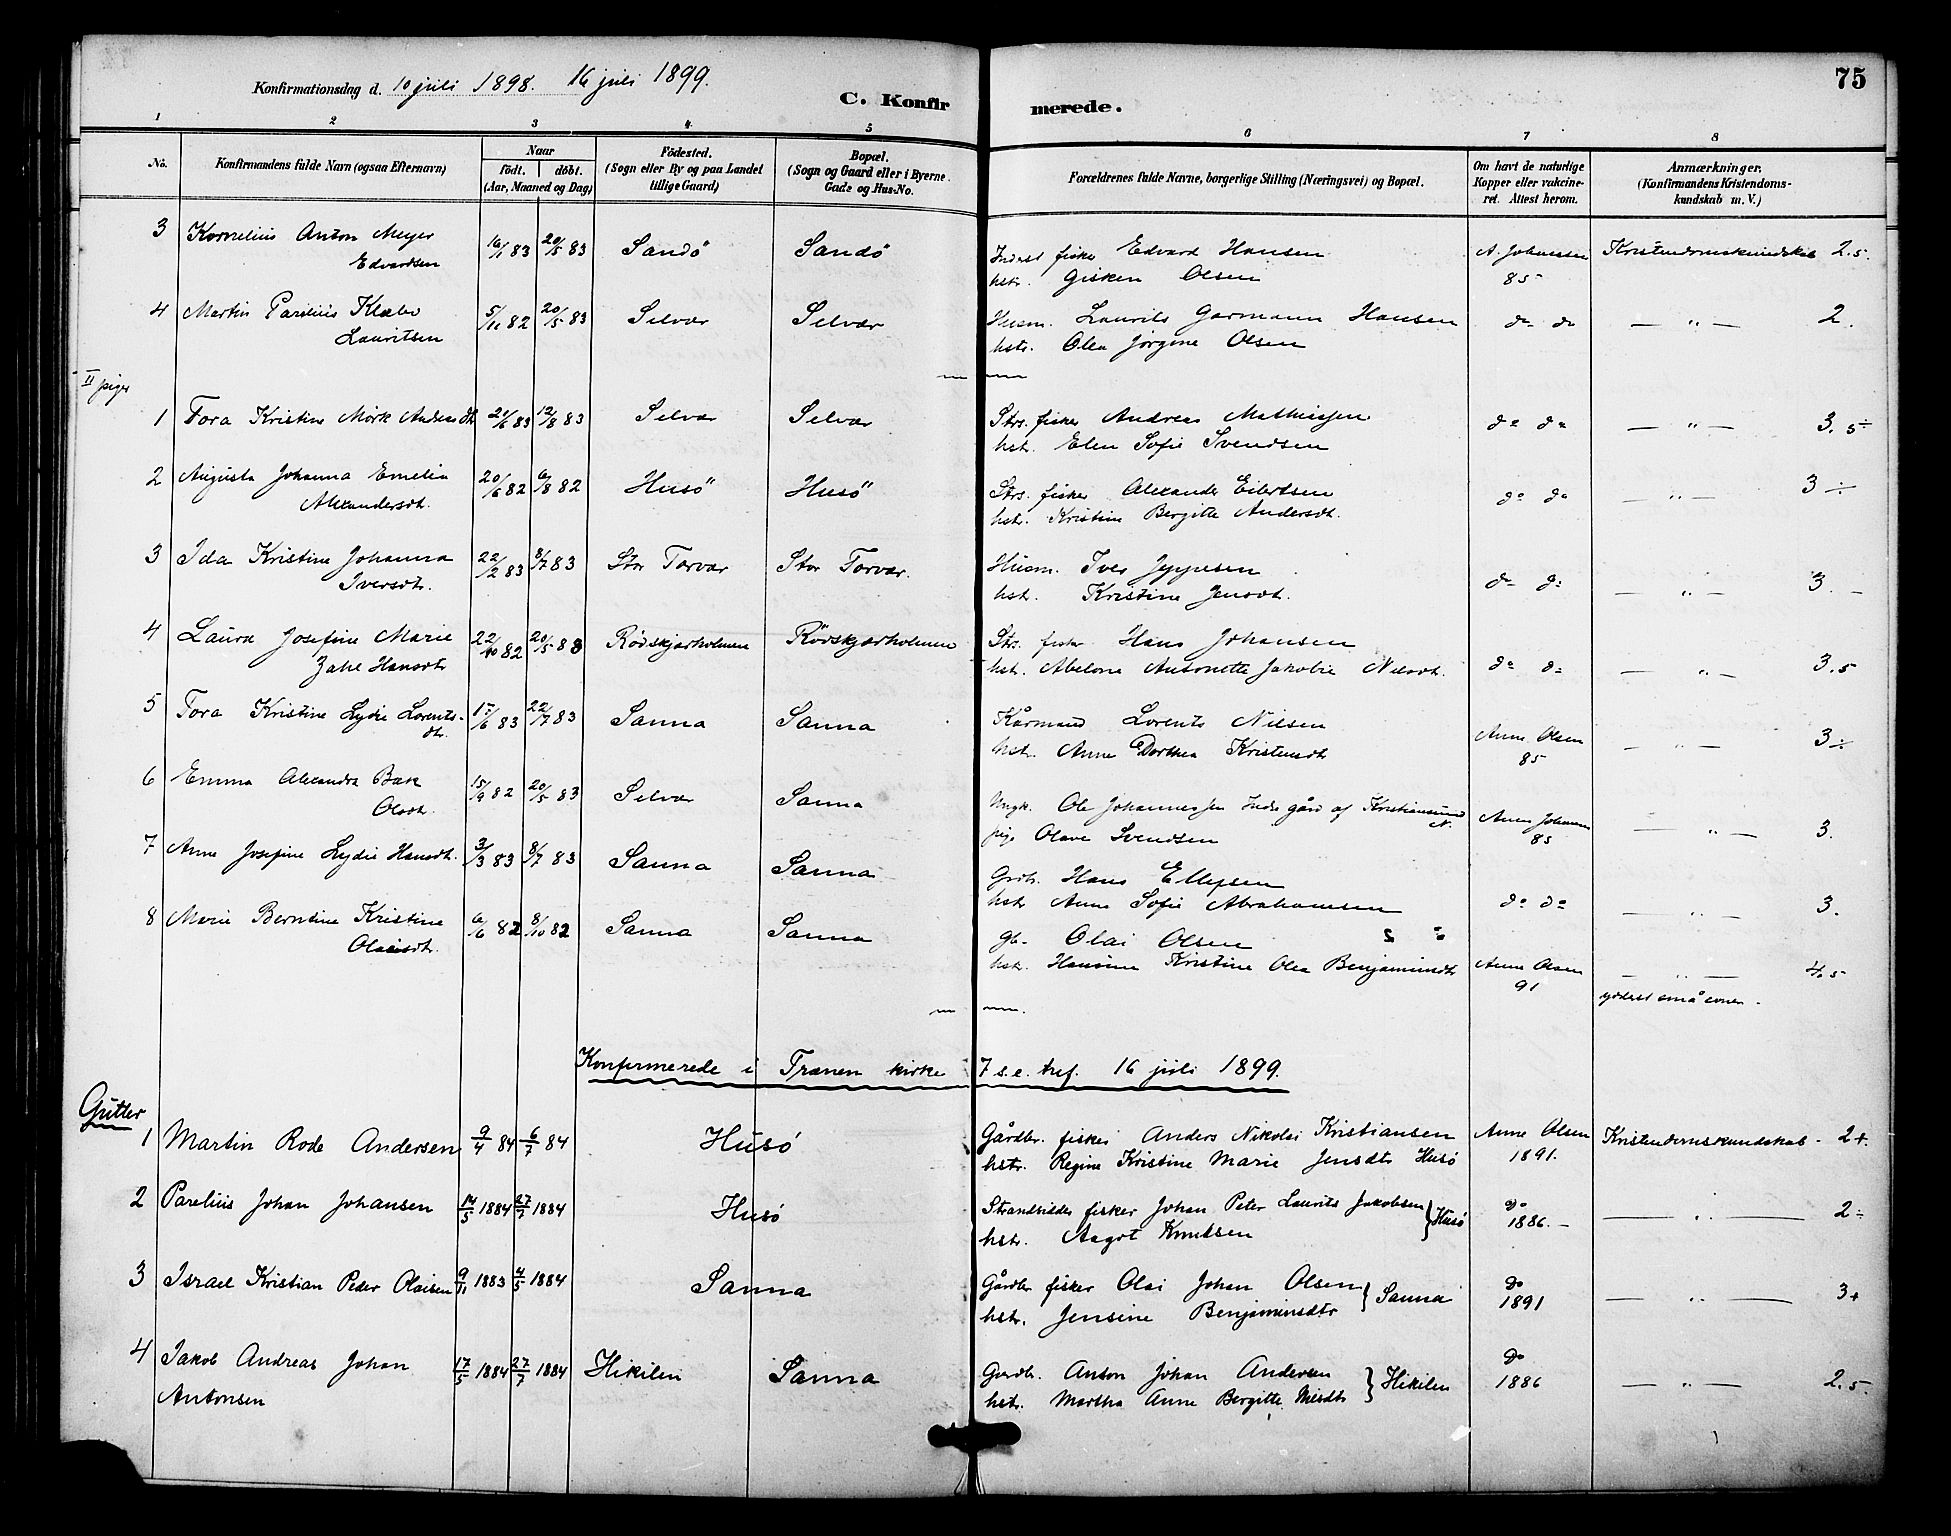 Konfirmationsdag d. 10 juli 1898. 16 juli 1899.
C. Konfirmerede.
75
1 2 3 4 5 6 7 8
No. Konfirmandens fulde Navn (ogsaa Efternavn) Naar født. døbt. (Aar, Maaned og Dag) Fødested. (Sogn eller By og paa Landet tillige Gaard) Bopæl. (Sogn og Gaard eller i Byerne Gade og Hus-No. Forældrenes fulde Navne, borgerlige Stilling (Næringsvei) og Bopæl. Om havt de naturlige Kopper eller vakcineret. Attest herom. Anmærkninger. (Konfirmandens Kristendomskundskab m. V.)
3 Kornelius Anton Meyer Edvardsen 16/1 83 20/5 83 Sandö Sandö Inderst fisker Edvard Hansen hstr. Gisken Olsen A. Johnsen 85 Kristendomskundskab 2.5.
4 Martin Parelius Klæbo Lauritsen 5/11 82 20/5 83 Selvær Selvær Husm. Laurits Garmann Hansen hstr. Olea Jörgine Olsen do do — " — 2.
II piger
1 Tora Kristine Mörk Andreasdt 20/6 83 12/8 83 Selvær Selvær Strs. fisker Andreas Mathiesen hst. Elen Sofie Svendsen do do — " — 3.5÷
2 Augusta Johanna Emelia Alexandersdt. 20/6 82 6/8 82 Husö Husö Strs. fisker Alexander Eilertsen hst. Kristine Bergitte Andersdt. do do — " — 3÷
3 Ida Kristine Johanna Iversdt. 22/2 83 8/7 83 Stor Torvær Stor Torvær. Husm. Iver Jeppesen hst. Kristine Jensdt. do do — " — 3.
4 Laura Josefine Marie Zahl Hansdt. 22/10 82 20/5 83 Rödskjærholmen Rödskjærholmen Str. fisker Hans Johansen hst. Abelone Antonette Jakobie Nilsdt. do do — " — 3.5
5 Tora Kristine Lydie Lorentsdtr. 17/6 83 22/7 83 Sanna Sanna Kårmand Lorents Nilsen hst. Anne Dorthea Kristensdt Anne Olsen 85 — " — 3÷
6 Emma Alexandra Bak Olsdt. 15/9 82 20/5 83 Selvær Sanna Ungk. Ole Johannessen Indre gård af Kristiansund N. pige Olave Svendsen Anne Johnsen 85 — " — 3.
7 Anne Josefine Lydie Hansdt. 3/3 83 8/7 83 Sanna Sanna Grdb. Hans Ellefsen hst. Anne Sofie Abrahamsen do do — " — 3.
8 Marie Berntine Kristine Olaisdt. 6/6 82 8/10 82 Sanna Sanna gb. Olai Olsen hst. Hansine Kristine Olea Benjaminsdt Anne Olsen 91 — " — 4.5
yderst små evner.
Konfirmerede i Trænen kirke 7 s. e. tref. 16 juli 1899.
Gutter
1 Martin Rode Andersen 9/4 84 6/7 84 Husö Gårdbr. fisker Anders Nikolai Kristiansen hstr. Regine Kristine Marie Jensdtr Husö Anne Olsen 1891. Kristendomskundskab - 2+.
2 Parelius Johan Johansen 14/5 1884 27/7 1884 Husö Strandsidder fisker Johan Peter Laurits Jakobsen hstr. Aagot Knudsen } Husö do 1886. — " — 2÷
3 Israel Kristian Peder Olaisen 9/11 1883 4/5 1884 Sanna Gårdbr fisker Olai Johan Olsen hstr. Jensine Benjaminsdtr } Sanna do 1891 — " — 3+
4 Jakob Andreas Johan Antonsen 17/5 1884 27/7 1884 Hikilen Sanna Gardb. Anton Johan Andersen hstr. Martha Anne Bergitte Nilsdtr } Hikilen do 1886 — " — 2.5.